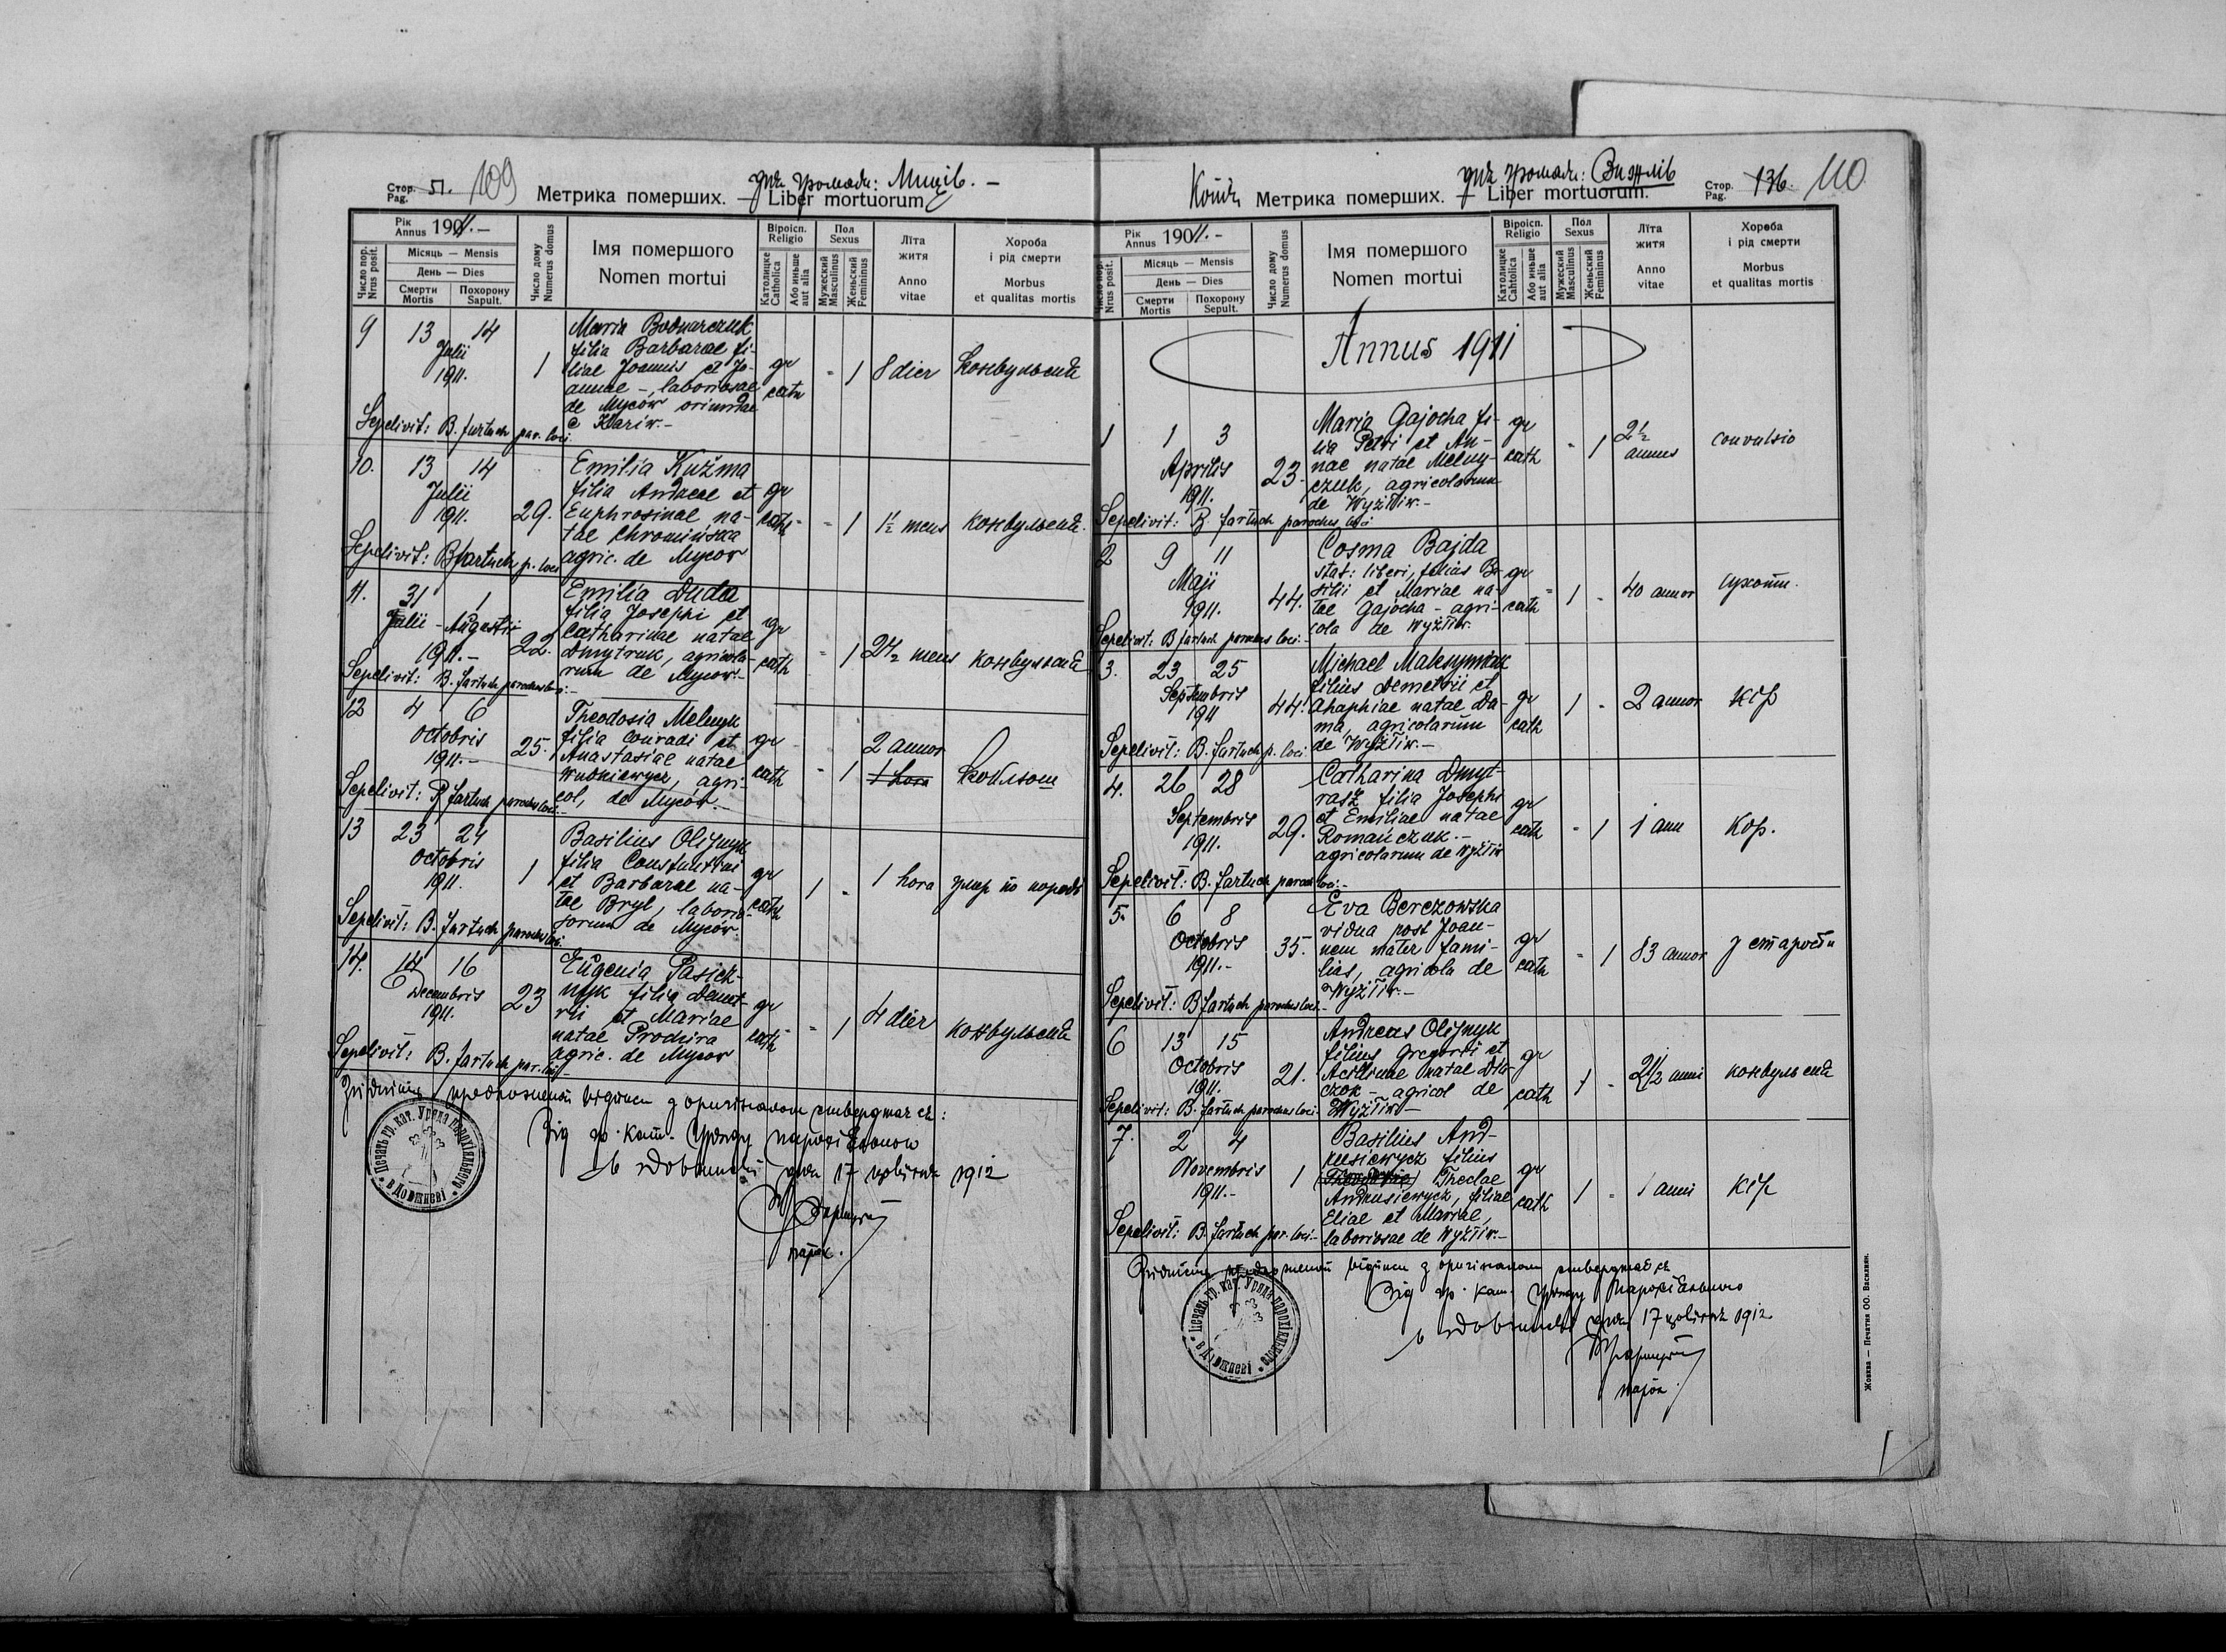 для громади: Мицiв. –
Стор. Pag. 51. 109
Метрика померших. – Liber mortuorum
Рiк Annus 1911. –
Число пор. Nrus posit.
Мiсяць — Mensis
День — Dies
Смерти Mortis
Похорону Sapult.
Число дому Numerus domus
Імя помершого
Nomen mortui
Віроісп. Religio
Католицке Catholica
Або иньше aut alia
Пол Sexus
Мужеский Masculinus
Женьский Femininus
Лїта житя
Anno vitae
Хороба і рід смерти
Morbus et qualitas mortis
9 13 14 Julii 1911. 1
Maria Bodnarczuk
filia Barbarae fi-
liae Joannis et Jo-
annae –, laboriosae
de Myców oriundae
e Kariw. –
gr cath - 1 8 dier Конвульсия
Sepelivit: B. Fartuch par. loci
10. 13 14 Julii 1911. 29.
Emilia Kuźma
filia Andreae et
Euphrosinae, na-
tae Chromińska
agric. de Mycow
gr cath - 1 1½ mens конвульсия.
Sepelivit: B Fartuch p. loci
11. 31 1 Julii - Augusti 1911. – 22.
Emilia Duda
filia Josephi et
Catharinae natae
Dmytruk, agricola-
rum de Mycow. –
gr cath - 1 2½ mens конвульсия
Sepelivit: B. Fartuch parochus loci. –
12 4 6 Octobris 1911. – 25.
Theodosia Melnyk
filia Conradi et
Anastasiae natae
agri-
col, de Myców. –
gr cath - 1 2 annor 1 hora Коклюш
Sepelivit: B Fartuch parochus loci. –
13 23 24 Octobris 1911. 1
Basilius Olijnyk
filia Constantini
et Barbarae na-
tae Bryl, labori-
sorum de Myców.
gr cath 1 - 1 hora умер по породi
Sepelivit: B. Fartuch parochus loci.
14. 14 16 Decembris 1911. 23
Eugenia Pasicz-
nyk filia Demet-
rii et Mariae
natae Prochira
agric. de Mycow
gr cath - 1 4 dier конвульсия
Sepelivit: B. Fartuch par. loci –
Від гр. кат. Уряду парохіяльного
в Довжневі дня 17 цвітня 1912
парох.
Печать гр. кат. Уряда парохіяльного в Довжневі
Конiя
для громади: Вижлiв
Метрика померших. – Liber mortuorum.
Стор. Pag. 136. 110
Рiк Annus 1911. –
Число пор. Nrus posit.
Мiсяць — Mensis
День — Dies
Смерти Mortis
Похорону Sepult.
Число дому Numerus domus
Імя помершого
Nomen mortui
Віроісп. Religio
Католицке Cahtolica
Або иньше aut alia
Пол Sexus
Мужеский Masculinus
Женьский Femininus
Лїта житя
Anno vitae
Хороба і рід смерти
Morbus et qualitas mortis
Annus 1911
1 1 3 Aprilis 1911. 23.
Maria Gajocha fi-
lia Petri et An-
nae natae Melny-
czuk, agricolarum
de Wyżłiw. –
gr cath - 1 2½ annus convulsio
Sepelivit: B Fartuch parochus loci
2 9 11 Maji 1911. 44.
Cosma Bajda
stat: liberi, filius Ba-
silii et Mariae na-
tae Gajocha – agri-
cola de Wyżłiw.
gr cath - 1 - 40 annor сухоти.
Sepelivit: B Fartuch parochus loci. –
3. 23 25 Septembris 1911 44.
Michael Maksymiak
filius Demetrii et
Ahaphiae natae Da-
ma, agricolarum
de Wyżłiw. –
gr cath 1 - 2 annor кір
Sepelivit: B. Fartuch p. loci
4. 26 28 Septembris 1911. 29.
Catharina Dmyt-
rasz filia Josephi
et Emiliae natae
Romańczuk. –
agricolarum de Wyżłiw
gr cath - 1 1 ann кор.
Sepelivit: B. Fartuch paroch loci. –
5. 6 8 Octobris 1911. – 35.
Eva Berezowska
vidua post Joan-
nem mater fami-
lias, agricola de
Wyżłiw. –
gr cath - 1 83 annor з старости
Sepelivit: B Fartuch parochus loci. –
6 13 15 Octobris 1911. 21.
Andreas Olijnyk
filius Gregorii et
natae Dia-
czok – agricol de
Wyżłiw –
gr cath 1 - 2½ anni конвульсия
Sepelivit: B. Fartuch parochus loci. –
7. 2 4 Novembris 1911. – 1
Basilius And-
rusiewycz filius
Theclae
Andrusiewycz, filiae
Eliae et Mariae,
laboriosae de Wyżłiw. –
gr cath 1 - 1 anni кір
Sepelivit: B. Fartuch par. loci. –
Від гр. кат. Уряду парохіяльного
в Довжневі дня 17 цвітня 1912
парох.
Печать гр. кат. Уряда парохіяльного в Довжневі
Жовква — Печатня ОО. Василиян.